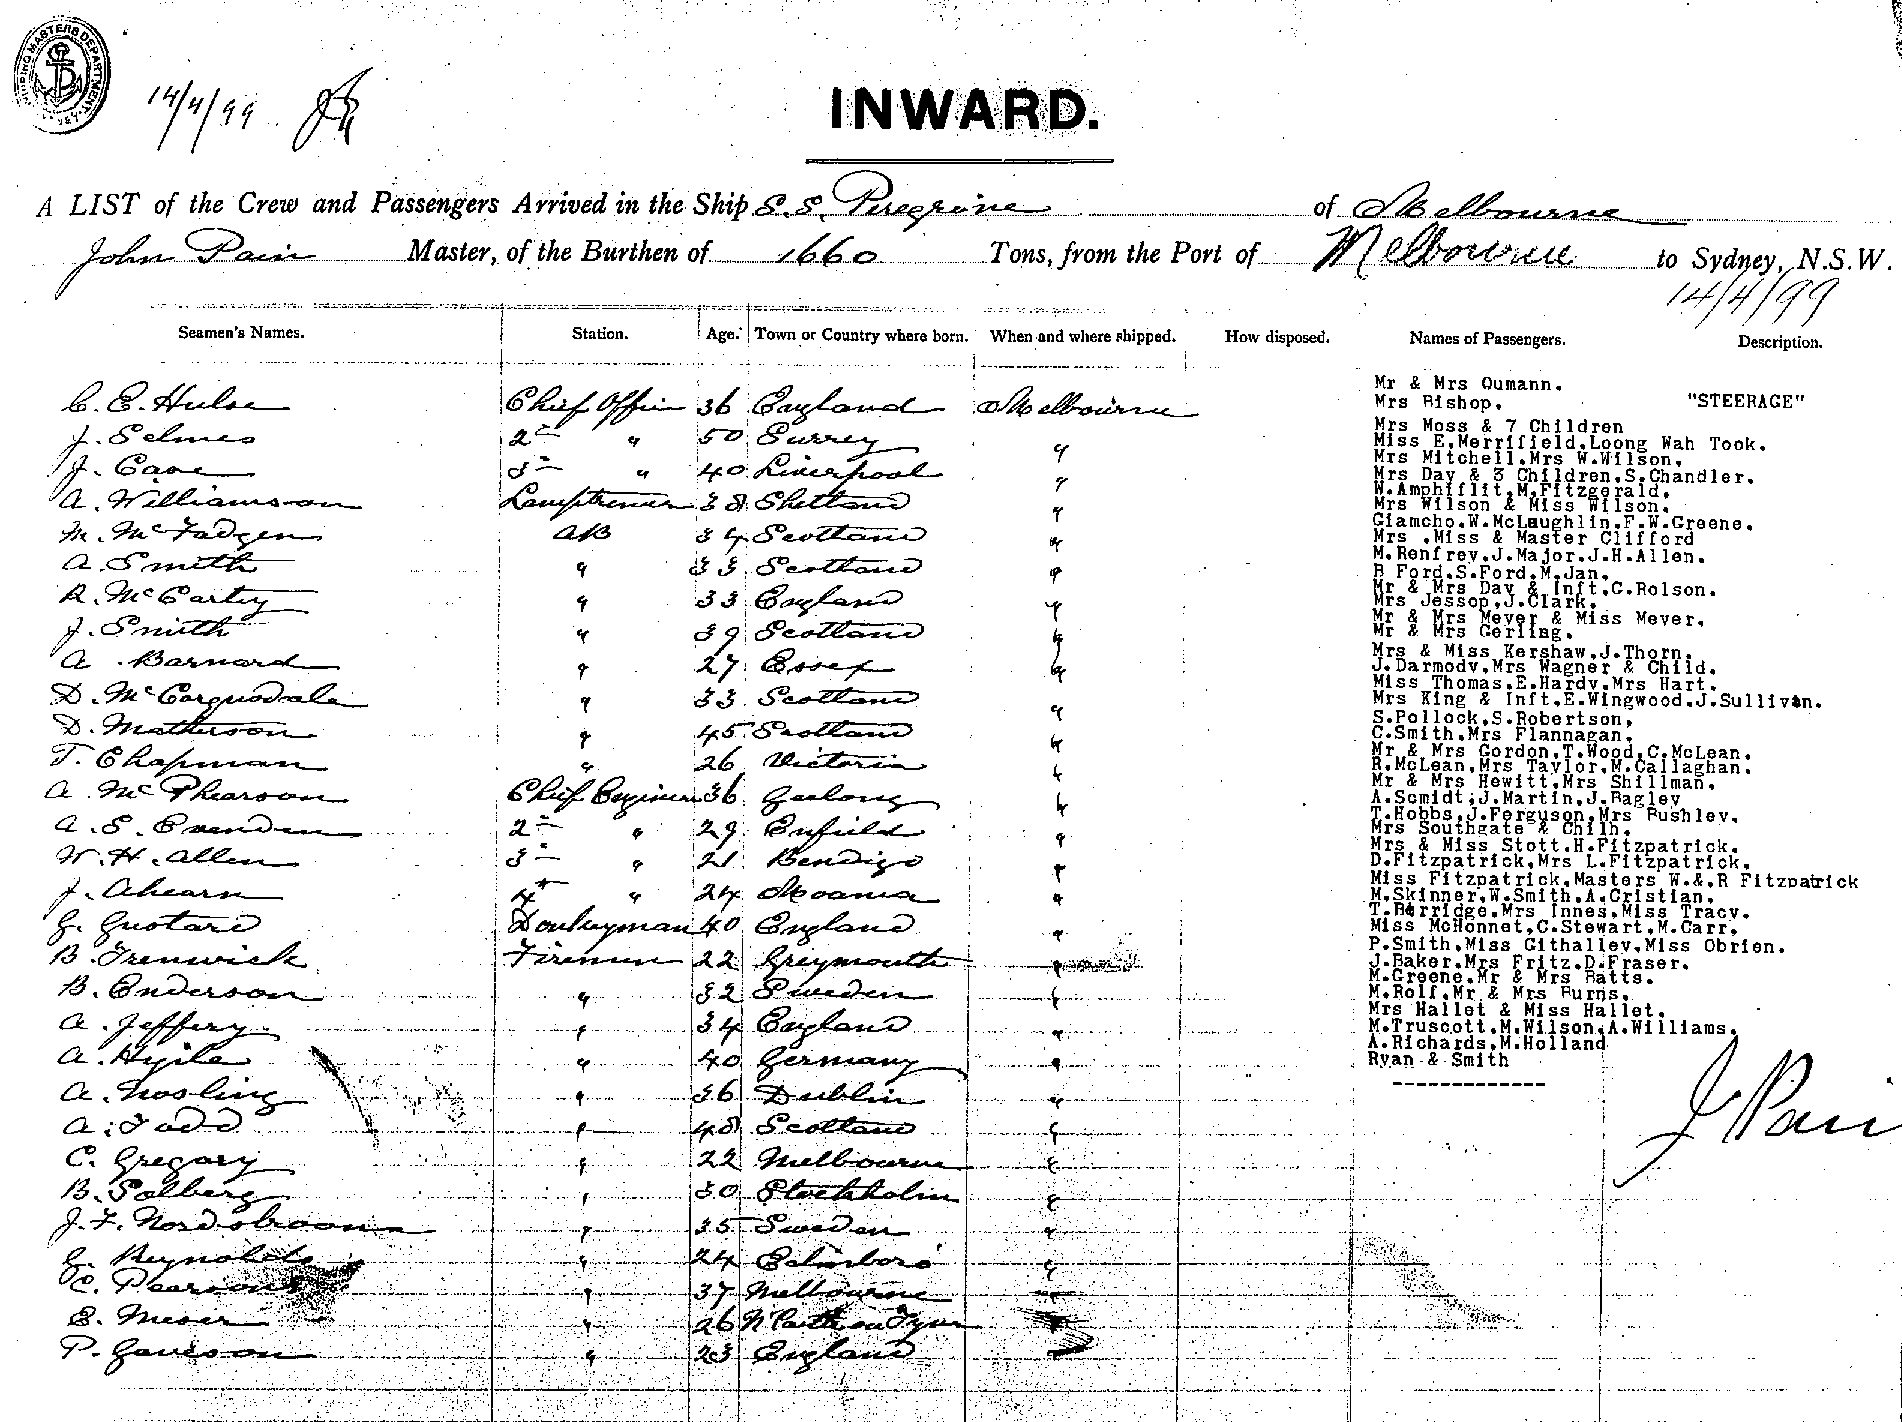 SHIPPING MASTERS DEPARTMENT
14/4/99
INWARD.
A LIST of the Crew and Passengers Arrived in the Ship S.S. Peregrine of Melbourne
John Pain Master, of the Burthen of 1660 Tons, from the Port of Melbourne to Sydney, N.S.W.
14/4/99
Seamen's Names. Station. Age. Town or Country where born. When and where shipped. How disposed. Names of Passengers. Description.
C. E. Hulse Chief Officer 36 England Melbourne
J. Selmes 2nd " 50 Surrey "
J. Cave 3rd " 40 Liverpool "
A. Williamson Lamptrimmer 38 Shetland "
M. McFadgen AB 34 Scotland "
A. Smith " 33 Scotland "
R. McCarty " 33 England "
J. Smith " 39 Scotland "
A. Barnard " 27 Essex "
D. McCorquodale " 33 Scotland "
D. Matherson " 45 Scotland "
T. Chapman " 26 Victoria "
A. McPhearson Chief Engineer 36 Geelong "
A. S. Evenden 2nd " 29 Enfield "
W. H. Allen 3rd " 21 Bendigo "
J. Ahearn 4th " 24 Moama "
G. Gustard Donkeyman 40 England "
B. Frenwick Firemen 22 Greymouth "
B. Enderson " 32 Sweden "
A. Jeffery " 34 England "
A. " 40 Germany "
A. Nosling " 36 Dublin "
A. Todd " 48 Scotland "
C. Gregory " 22 Melbourne "
B. Solberg " 30 Stockholm "
J. F. Nordstroom " 35 Sweden "
G. Reynolds " 24 Edinboro' "
C. Pearson " 37 Melbourne "
E. " 26 "
P. " 23 England "
Mr & Mrs Oumann.
Mrs Bishop. "STEERAGE"
Mrs Moss & 7 Children
Miss E.Merrifield.Loong Wah Took.
Mrs Mitchell.Mrs W.Wilson.
Mrs Day & 3 Children.S.Chandler.
W.Amphiflit.M.Fitzgerald.
Mrs Wilson & Miss Wilson.
Giamcho.W.McLaughlin.F.W.Greene.
Mrs .Miss & Master Clifford
M.Renfrey.J.Major.J.H.Allen.
B Ford.S.Ford.M.Jan.
Mr & Mrs Day & Inft.G.Rolson.
Mrs Jessop.J.Clark.
Mr & Mrs Meyer & Miss Meyer.
Mr & Mrs Gerling.
Mrs & Miss Kershaw.J.Thorn.
J.Darmody.Mrs Wagner & Child.
Miss Thomas.E.Hardy.Mrs Hart.
Mrs King & Inft.E.Wingwood.J.Sullivan.
S.Pollock.S.Robertson.
C.Smith.Mrs Flannagan.
Mr & Mrs Gordon.T.Wood.C.McLean.
R.McLean.Mrs Taylor.M.Callaghan.
Mr & Mrs Hewitt.Mrs Shillman.
A.Scmidt;J.Martin.J.Bagley
T.Hobbs.J.Ferguson.Mrs Bushley.
Mrs Southgate & Chilh.
Mrs & Miss Stott.H.Fitzpatrick.
D.Fitzpatrick.Mrs L.Fitzpatrick.
Miss Fitzpatrick.Masters W.&.R Fitzpatrick
M.Skinner.W.Smith.A.Cristian.
T.Berridge.Mrs Innes.Miss Tracy.
Miss McHonnet.C.Stewart.M.Carr.
P.Smith.Miss Githalley.Miss Obrien.
J.Baker.Mrs Fritz.D.Fraser.
M.Greene.Mr & Mrs Batts.
M.Rolf.Mr & Mrs Burns.
Mrs Hallet & Miss Hallet.
M.Truscott.M.Wilson.A.Williams.
A.Richards.M.Holland
Ryan & Smith
J Pain